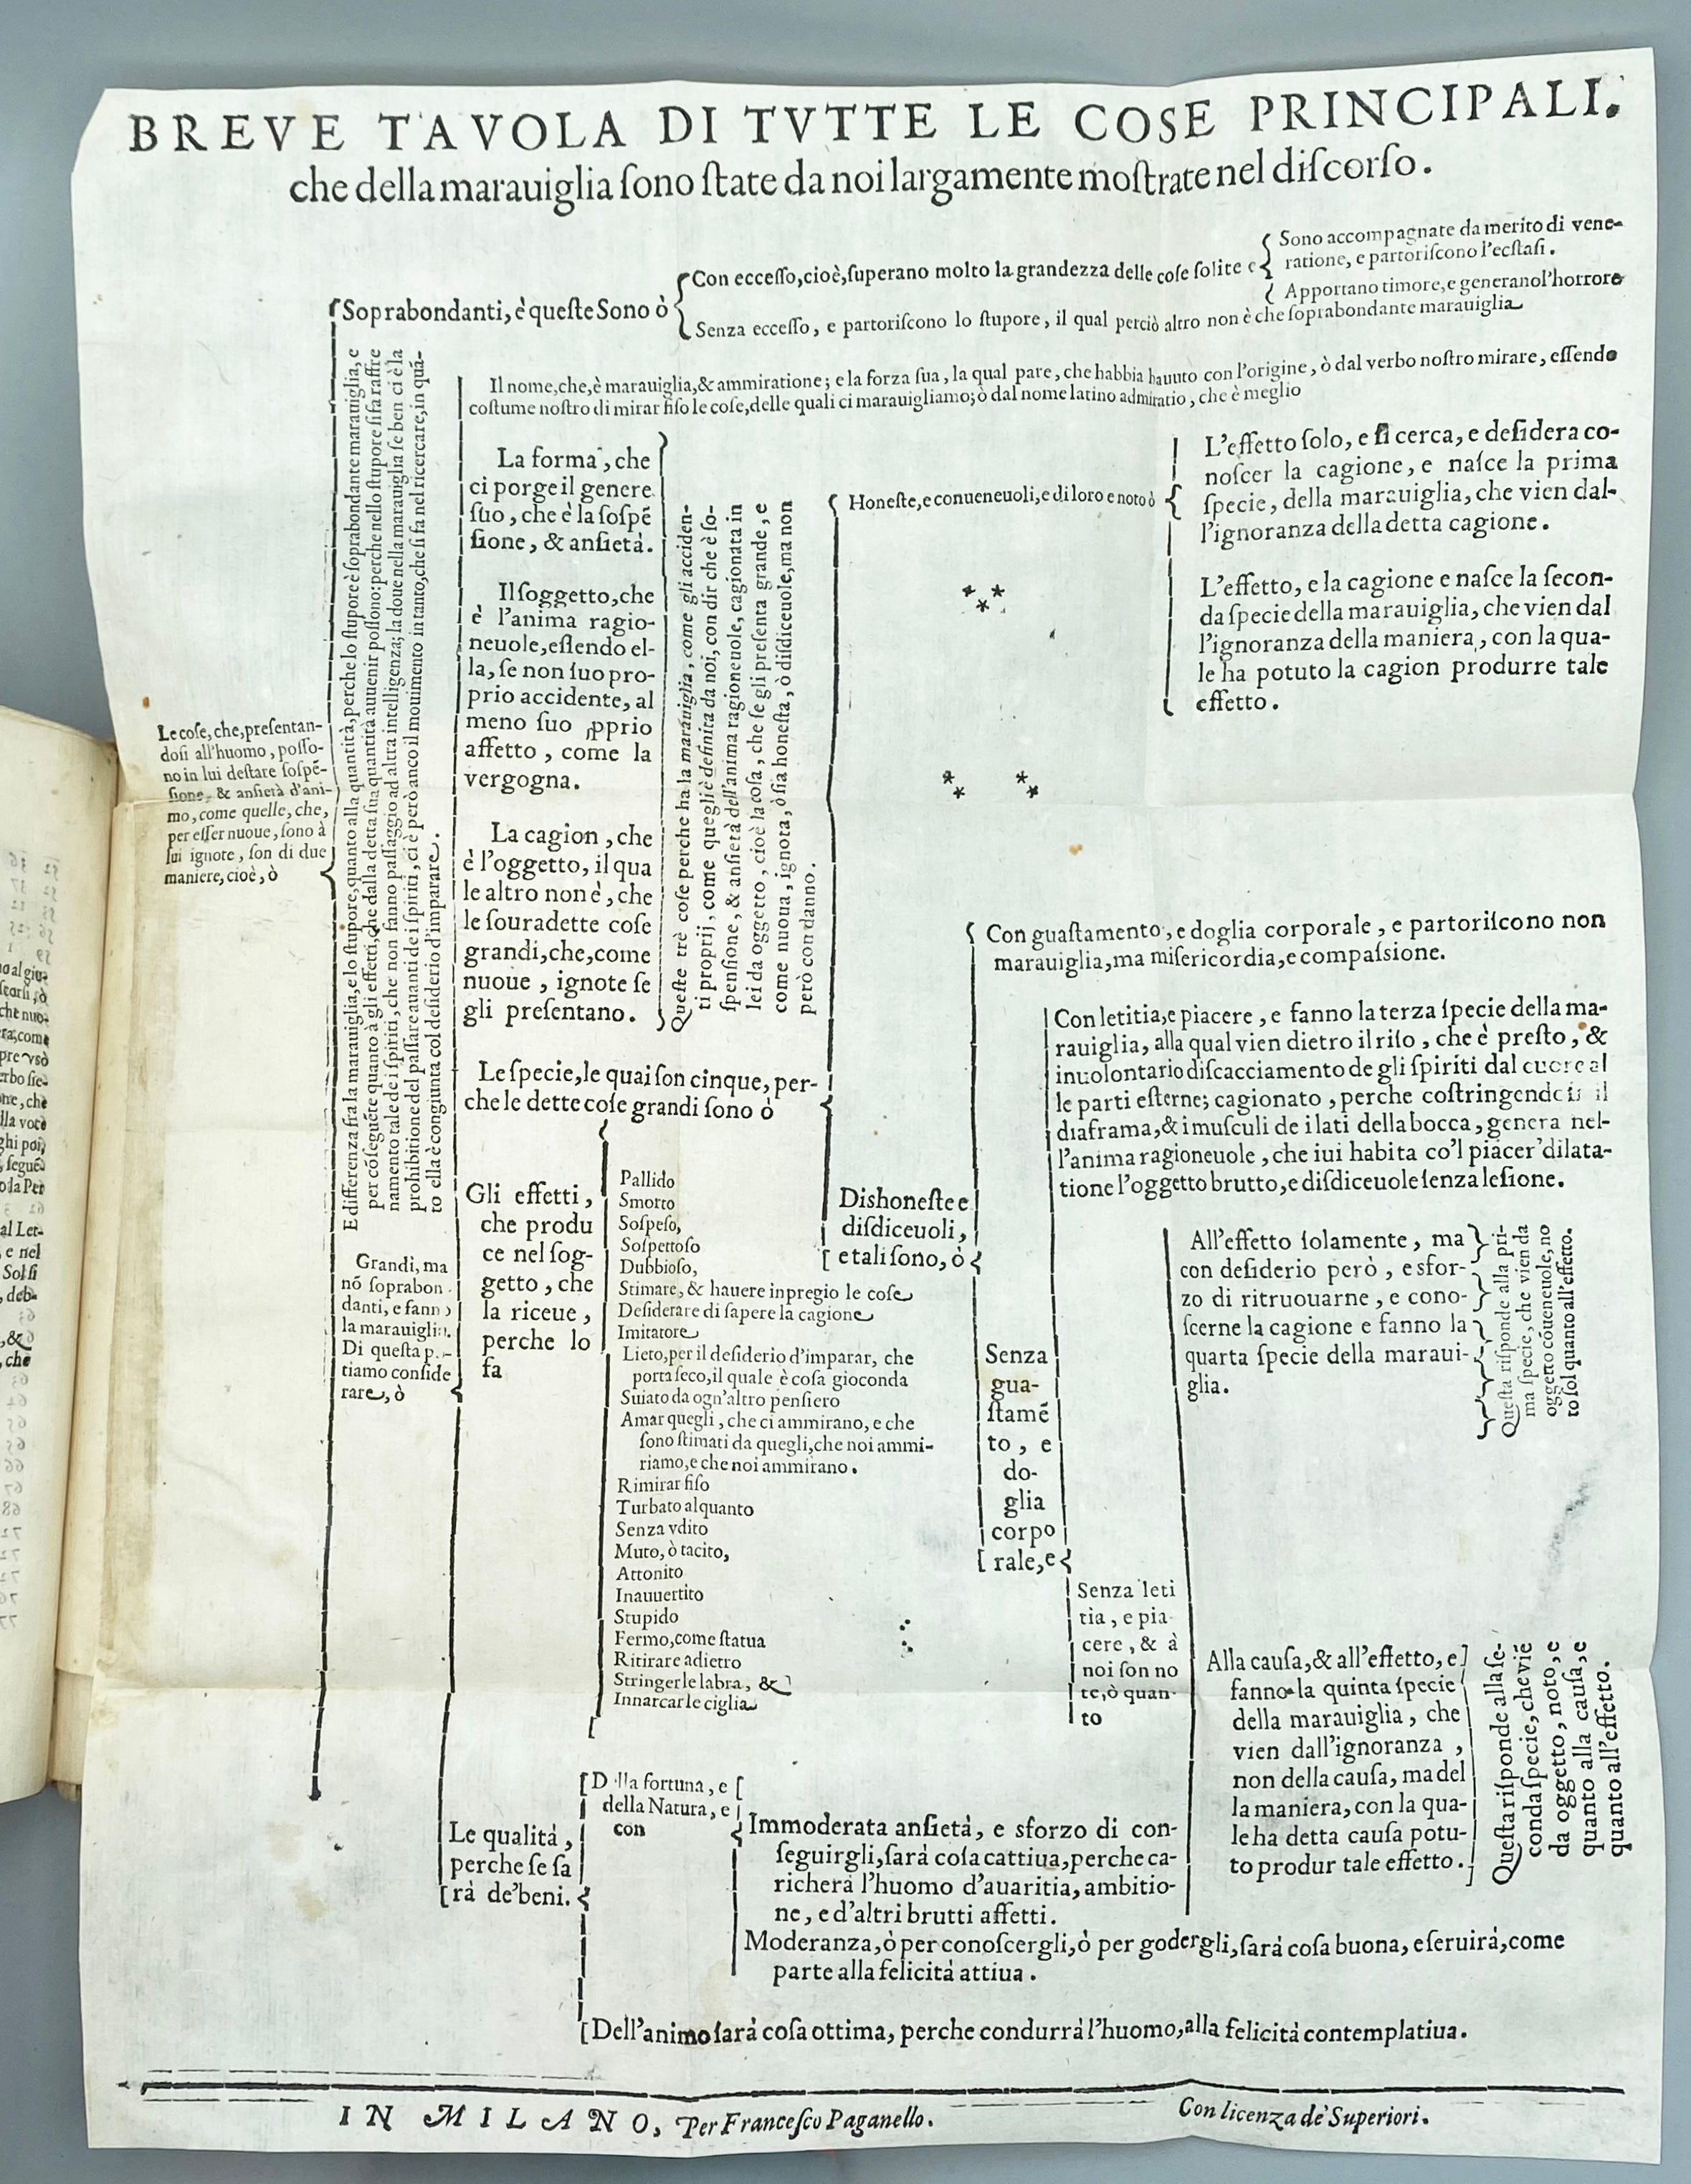 BREVE TAVOLA DI TVTTE LE COSE PRINCIPALI.
che della marauiglia ſono ſtate da noi largamente moſtrate nel diſcorſo.
Le coſe, che, preſentan-
doſi all'huomo, poſſo-
no in lui deſtare ſoſpẽ-
ſione, & anſietà d'ani-
mo, come quelle, che,
per eſſer nuoue, ſono à
lui ignote, ſon di due
maniere, cioè, ò
Soprabondanti, è queſte Sono ò
Con ecceſſo, cioè, ſuperano molto la grandezza delle coſe ſolite e
Sono accompagnate da merito di vene-
ratione, e partoriſcono l'ecſtaſi.
Apportano timore, e generano l'horrore
Senza ecceſſo, e partoriſcono lo ſtupore, il qual perciò altro non è che ſoprabondante marauiglia
E differenza fra la marauiglia, e lo ſtupore, quanto alla quantità, perche lo ſtupore è ſoprabondante marauiglia, e
per cõſeguẽte quanto à gli effetti, che dalla detta ſua quantità auuenir poſſono: perche nello ſtupore ſi fa raffre
namento tale de i ſpiriti, che non fanno paſſaggio ad altra intelligenza; la doue nella marauiglia ſe ben ci è la
prohibitione del paſſare auanti de i ſpiriti, ci è però anco il mouimento in tanto, che ſi fa nel ricercare, in quã-
to ella è congiunta col deſiderio d'imparare.
Grandi, ma
nõ ſoprabon
danti, e fann
la marauiglia.
Di queſta p
tiamo conſide
rare, ò
Il nome, che, è marauiglia, & ammiratione; e la forza ſua, la qual pare, che habbia hauuto con l'origine, ò dal verbo noſtro mirare, eſſendo
coſtume noſtro di mirar fiſo le coſe, delle quali ci marauigliamo; ò dal nome latino admiratio, che è meglio
La forma, che
ci porge il genere
ſuo, che è la ſoſpẽ
ſione, & anſietà.
Il ſoggetto, che
è l'anima ragio-
neuole, eſſendo el-
la, ſe non ſuo pro-
prio accidente, al
meno ſuo ꝓprio
affetto, come la
vergogna.
La cagion, che
è l'oggetto, il qua
le altro non è, che
le ſouradette coſe
grandi, che, come
nuoue, ignote ſe
gli preſentano.
Queſte trè coſe perche ha la marauiglia, come gli acciden-
ti proprij, come quegli è definita da noi, con dir che è ſo-
ſpenſione, & anſietà dell'anima ragioneuole, cagionata in
lei da oggetto, cioè la coſa, che ſe gli preſenta grande, e
come nuoua, ignota, ò ſia honeſta, ò diſdiceuole, ma non
però con danno.
Le ſpecie, le quai ſon cinque, per-
che le dette coſe grandi ſono ò
Honeſte, e conueneuoli, e di loro e noto ò
L'effetto ſolo, e ſi cerca, e deſidera co-
noſcer la cagione, e naſce la prima
ſpecie, della marauiglia, che vien dal-
l'ignoranza della detta cagione.
L'effetto, e la cagione e naſce la ſecon-
da ſpecie della marauiglia, che vien dal
l'ignoranza della maniera, con la qua-
le ha potuto la cagion produrre tale
effetto.
* * *
* * * *
Dishoneſte e
diſdiceuoli,
e tali ſono, ò
Con guaſtamento, e doglia corporale, e partoriſcono non
marauiglia, ma miſericordia, e compaſsione.
Senza
gua-
ſtamẽ
to, e
do-
glia
corpo
rale, e
Con letitia, e piacere, e fanno la terza ſpecie della ma-
rauiglia, alla qual vien dietro il riſo, che è preſto, &
inuolontario diſcacciamento de gli ſpiriti dal cuore al
le parti eſterne; cagionato, perche coſtringendoſi il
diaframa, & i muſculi de i lati della bocca, genera nel-
l'anima ragioneuole, che iui habita co'l piacer dilata-
tione l'oggetto brutto, e diſdiceuole ſenza leſione.
Senza leti
tia, e pia
cere, & à
noi ſon no
te, ò quan-
to
All'effetto ſolamente, ma
con deſiderio però, e sfor-
zo di ritruouarne, e cono-
ſcerne la cagione e fanno la
quarta ſpecie della maraui-
glia.
Queſta riſponde alla pri-
ma ſpecie, che vien da
oggetto cõueneuole, no
to ſol quanto all'effetto.
Alla cauſa, & all'effetto, e
fanno la quinta ſpecie
della marauiglia, che
vien dall'ignoranza,
non della cauſa, ma del
la maniera, con la qua-
le ha detta cauſa potu-
to produr tale effetto.
Queſta riſponde alla ſe-
conda ſpecie, che viẽ
da oggetto, noto, e
quanto alla cauſa, e
quanto all'effetto.
Gli effetti,
che produ
ce nel ſog-
getto, che
la riceue,
perche lo
fa
Pallido
Smorto
Soſpeſo,
Soſpettoſo
Dubbioſo,
Stimare, & hauere in pregio le coſe
Deſiderare di ſapere la cagione
Imitatore
Lieto, per il deſiderio d'imparar, che
porta ſeco, il quale è coſa gioconda
Suiato da ogn'altro penſiero
Amar quegli, che ci ammirano, e che
ſono ſtimati da quegli, che noi ammi-
riamo, e che noi ammirano.
Rimirar fiſo
Turbato alquanto
Senza vdito
Muto, ò tacito,
Attonito
Inauuertito
Stupido
Fermo, come ſtatua
Ritirare adietro
Stringer le labra, &
Innarcar le ciglia
Le qualità,
perche ſe ſa
rà de'beni.
D lla fortuna, e
della Natura, e
con
Immoderata anſietà, e sforzo di con-
ſeguirgli, ſarà coſa cattiua, perche ca-
richerà l'huomo d'auaritia, ambitio-
ne, e d'altri brutti affetti.
Moderanza, ò per conoſcergli, ò per godergli, ſarà coſa buona, e ſeruirà, come
parte alla felicità attiua.
Dell'animo ſarà coſa ottima, perche condurrà l'huomo, alla felicità contemplatiua.
IN MILANO, Per Franceſco Paganello.
Con licenza de' Superiori.